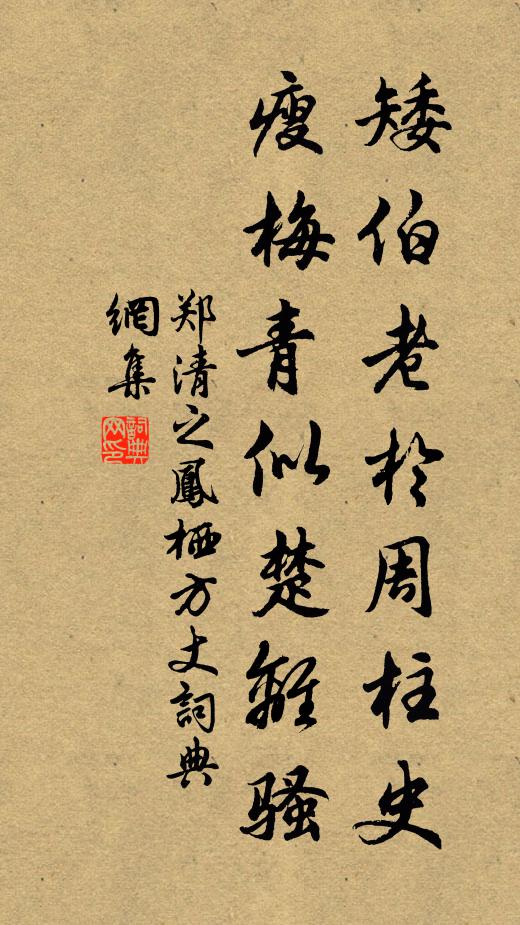 矮伯老於周柱史
瘦梅青似楚離骚
郑清之鳳栖方丈詞典
網集
詞典
网印